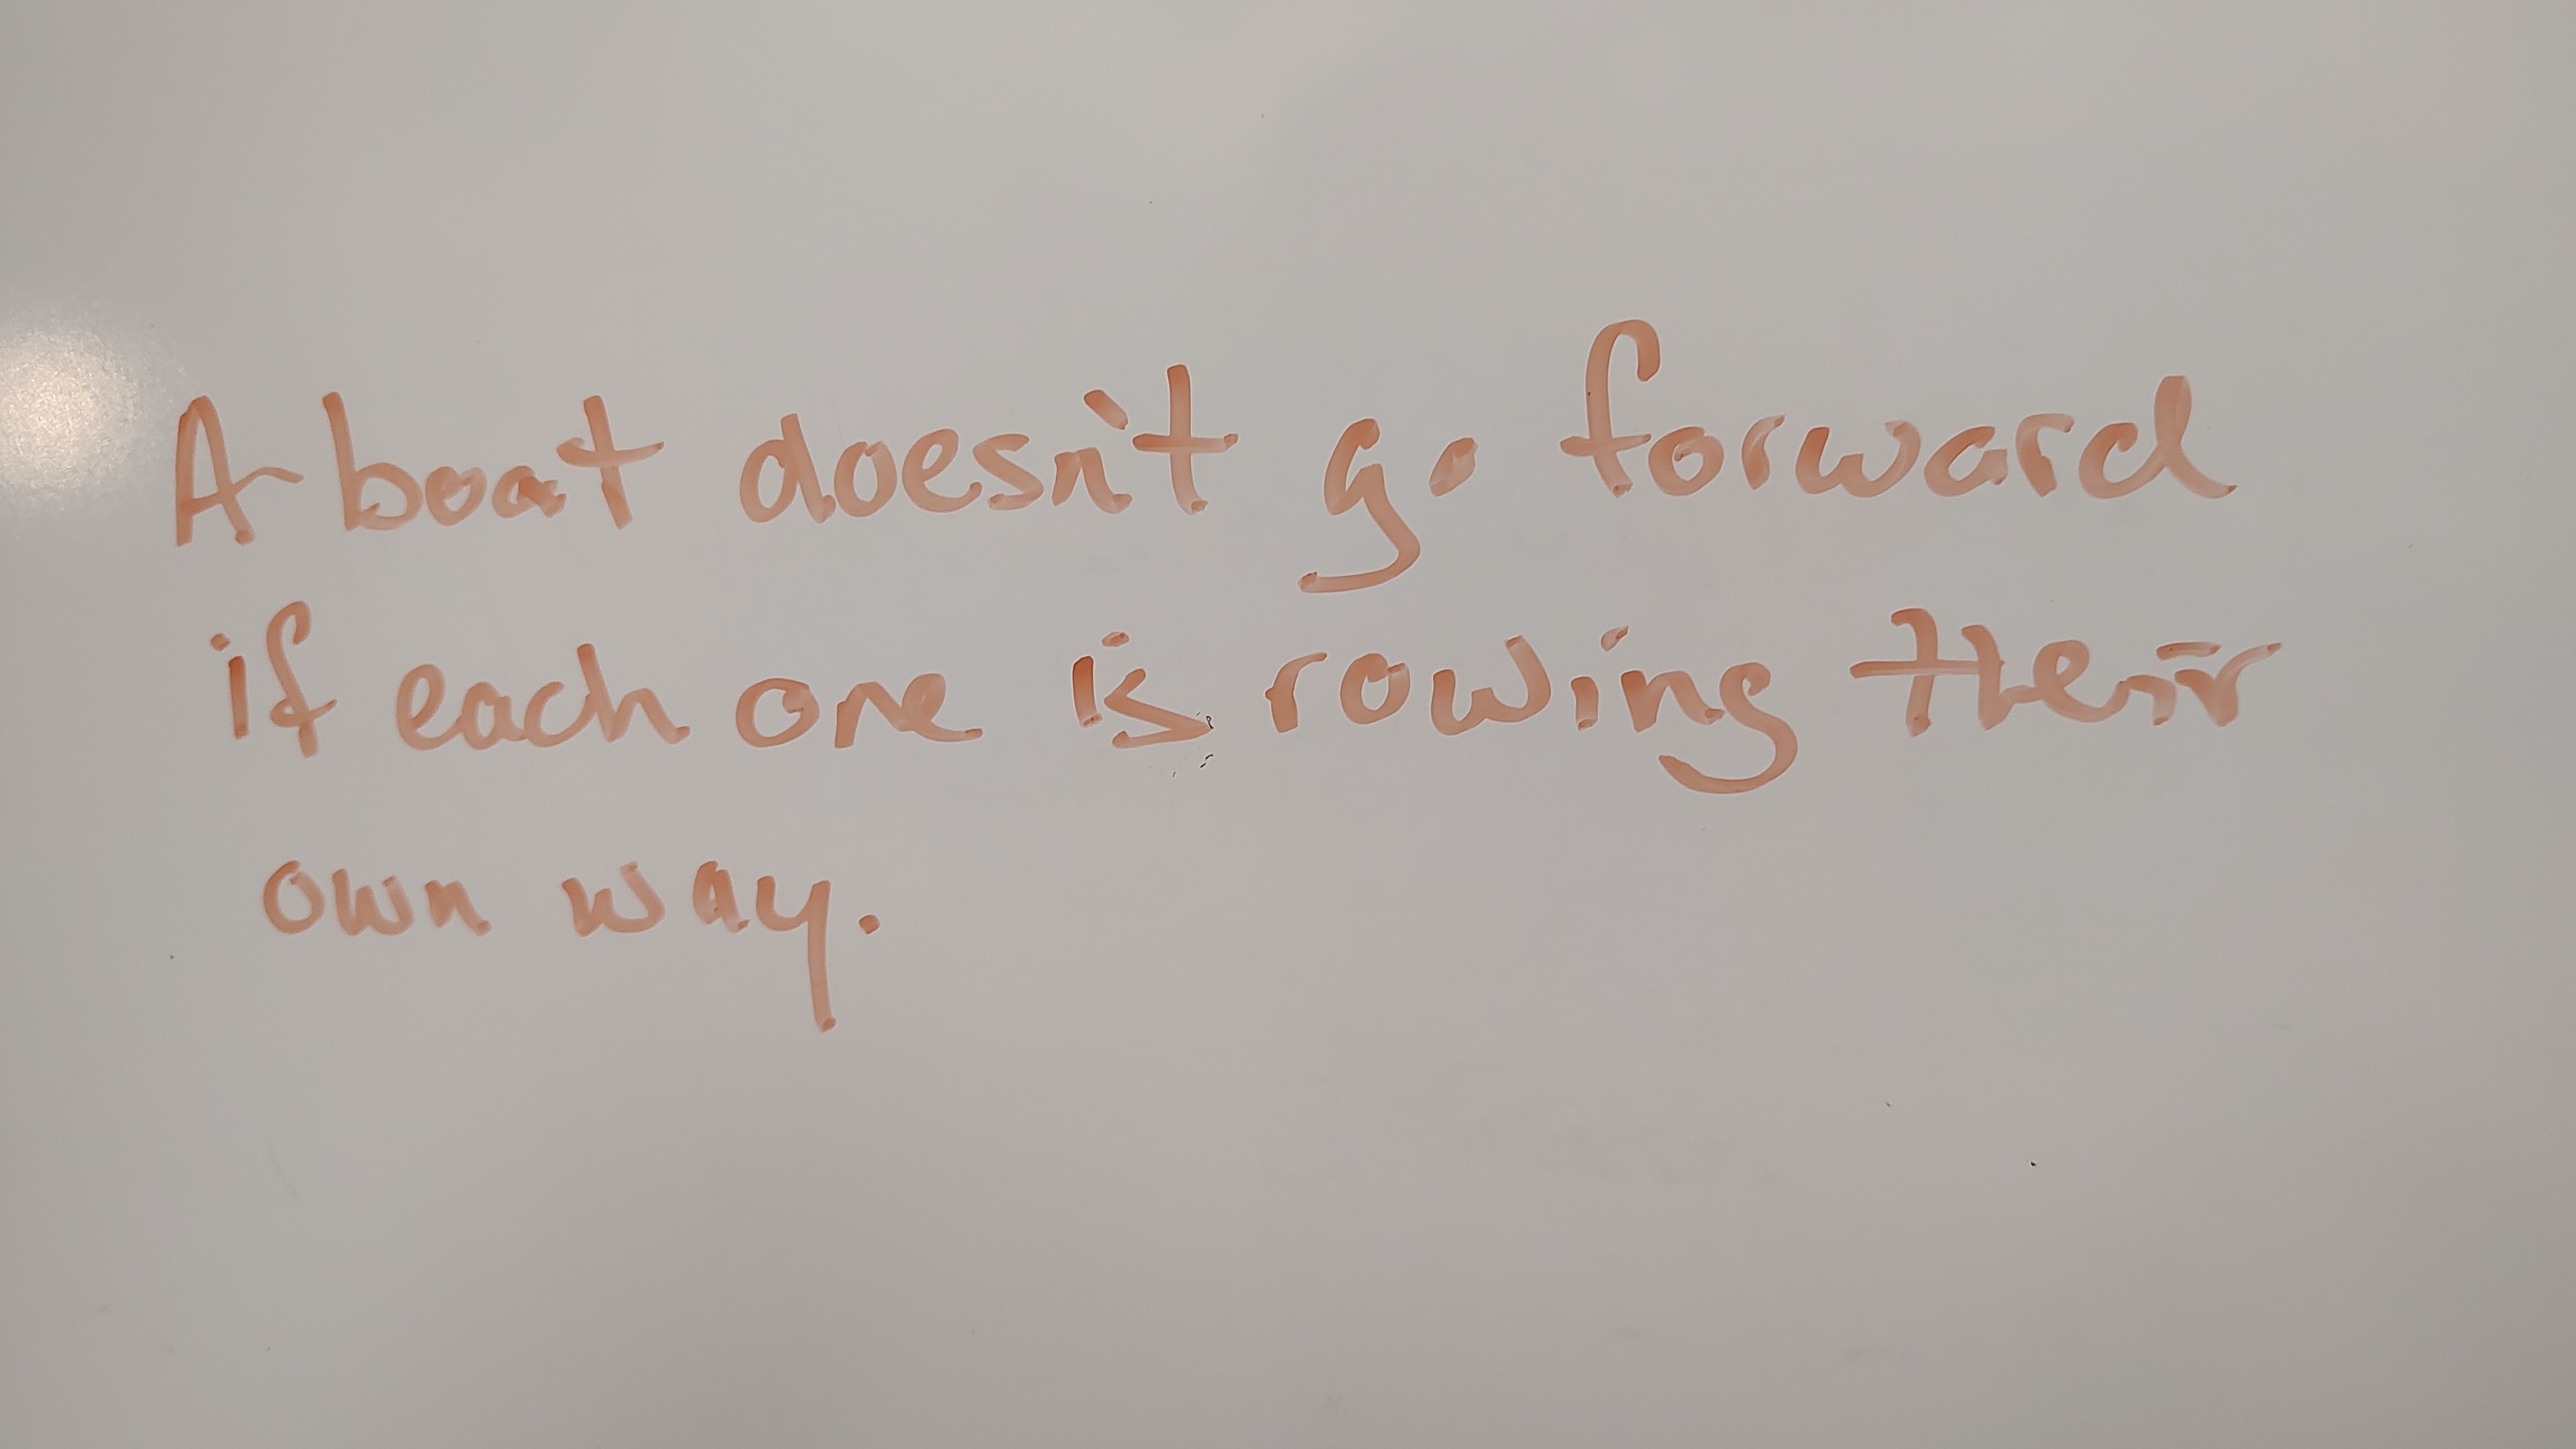 A boat doesn't go forward
if each one is rowing their
own way.